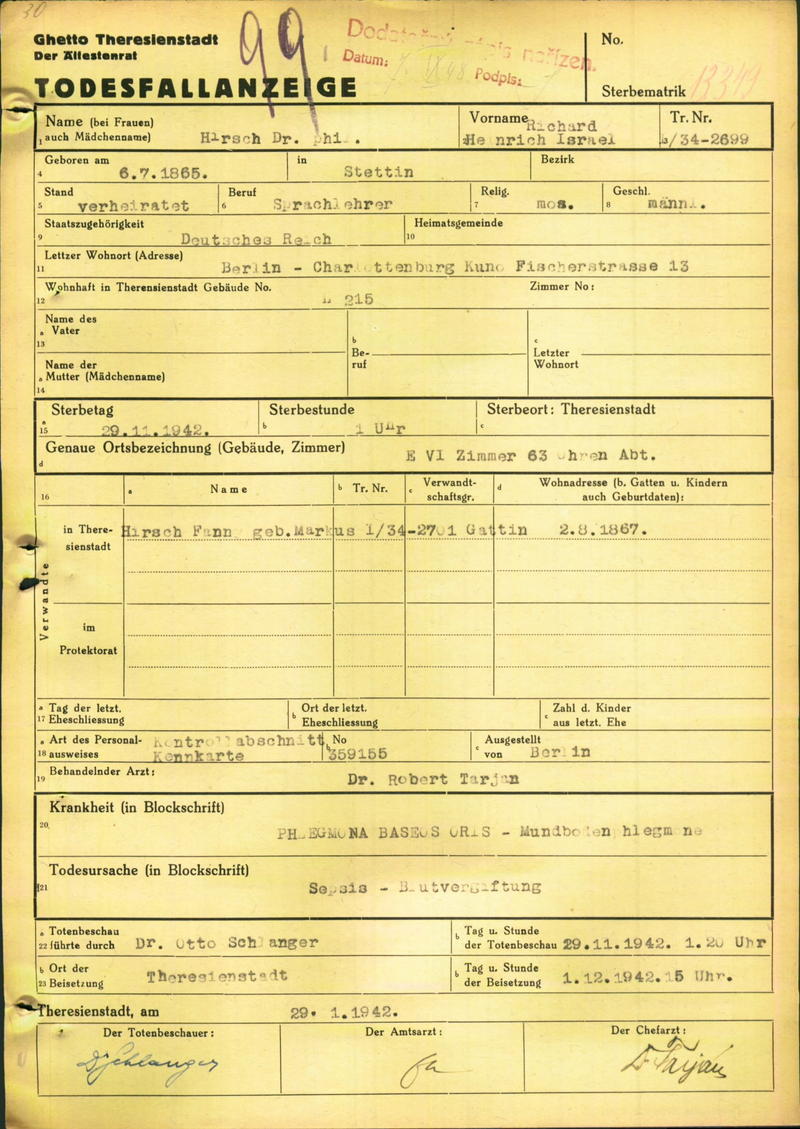 30
Ghetto Theresienstadt
Der Ältestenrat
TODESFALLANZEIGE
99
Datum:
Podpis:
No.
Sterbematrik
Name (bei Frauen)
1 auch Mädchenname)
Hirsch Dr. phi.
Vorname
Richard
Heinrich Israel
Tr. Nr.
/34-2699
Geboren am
4 6.7.1865.
in
Stettin
Bezirk
Stand
5 verheiratet
Beruf
6 Sprachlehrer
Relig.
7 mos.
Geschl.
8 männl.
Staatszugehörigkeit
9 Deutsches Reich
Heimatsgemeinde
10
Lettzer Wohnort (Adresse)
11 Berlin - Charlottenburg Kuno Fischerstrasse 13
Wohnhaft in Therensienstadt Gebäude No.
12 L 215
Zimmer No:
Name des
a Vater
13
b
Be-
ruf
c
Letzter
Wohnort
Name der
a Mutter (Mädchenname)
14
Sterbetag
a 15 29.11.1942.
Sterbestunde
b 1 Uhr
Sterbeort: Theresienstadt
c
Genaue Ortsbezeichnung (Gebäude, Zimmer)
d E VI Zimmer 63 Ohren Abt.
16 a Name
b Tr. Nr.
c Verwandt-
schaftsgr.
d Wohnadresse (b. Gatten u. Kindern
auch Geburtdaten):
Verwandte
in There-
sienstadt
Hirsch Fanny geb.Markus I/34-2701 Gattin 2.8.1867.
im
Protektorat
a Tag der letzt.
17 Eheschliessung
b Ort der letzt.
Eheschliessung
c Zahl d. Kinder
aus letzt. Ehe
a Art des Personal-
18 ausweises
Kontrollabschnitt
Kennkarte
b No
359155
c Ausgestellt
von Berlin
Behandelnder Arzt:
19 Dr. Robert Tarjan
Krankheit (in Blockschrift)
20. PHLEGMONA BASEOS ORIS - Mundboden
Todesursache (in Blockschrift)
21 Sepsis - Blutvergiftung
a Totenbeschau
22 führte durch Dr. Otto Schlanger
b Tag u. Stunde
der Totenbeschau 29.11.1942. 1.20 Uhr
b Ort der
23 Beisetzung Theresienstadt
b Tag u. Stunde
der Beisetzung 1.12.1942. 15 Uhr.
Theresienstadt, am 29. 1.1942.
Der Totenbeschauer:
Der Amtsarzt:
Der Chefarzt:
DSchlanger
Dr Tarján